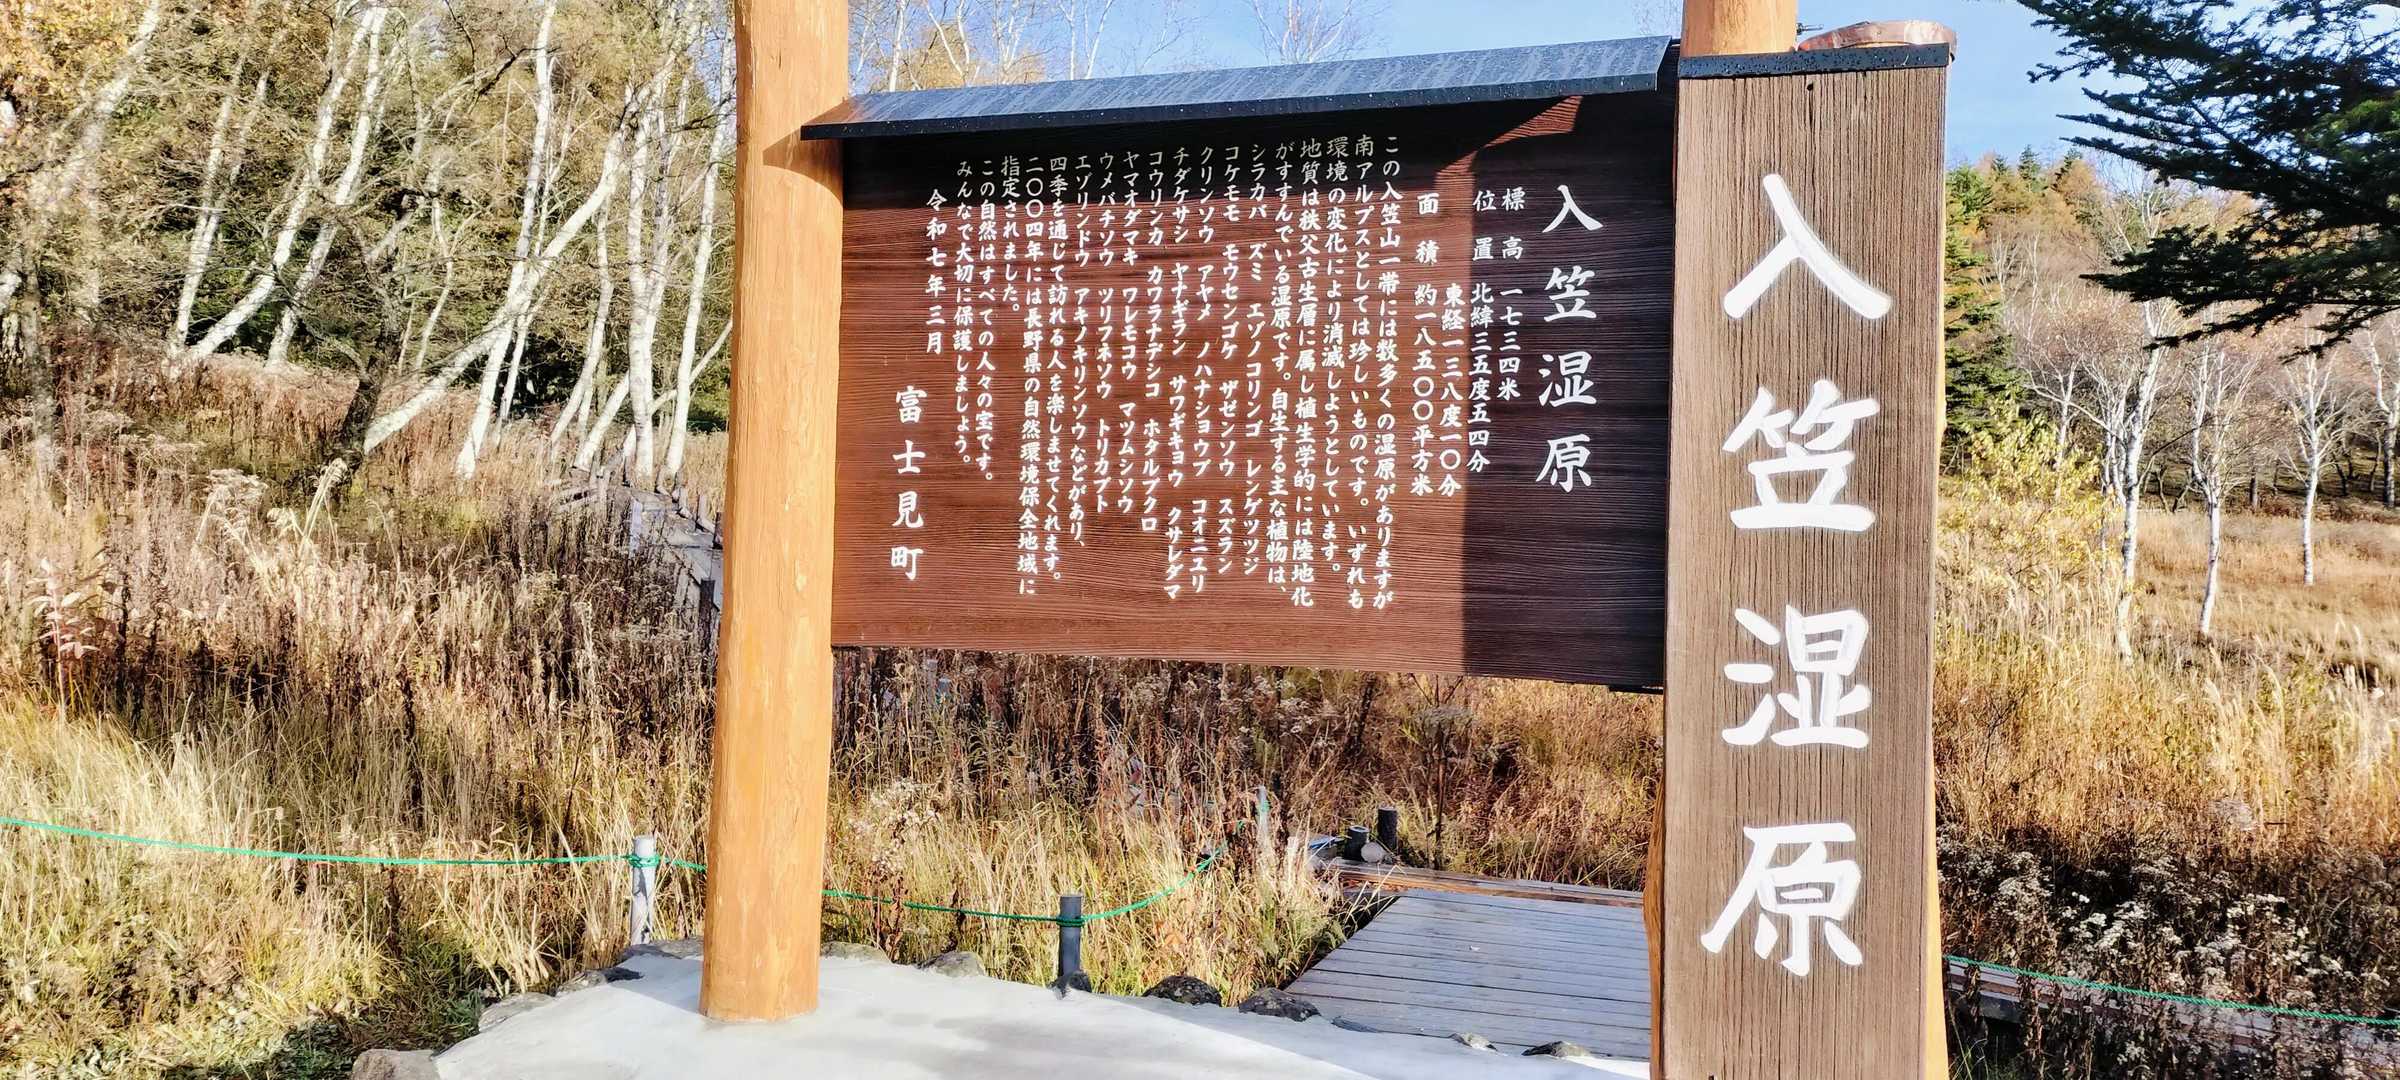 入笠湿原
入笠湿原
標高 一七三四米
位置 北緯三五度五四分
東経一三八度一〇分
面積 約一八五〇〇平方米
この入笠山一帯には数多くの湿原がありますが
南アルプスとしては珍しいものです。いずれも
環境の変化により消滅しようとしています。
地質は秩父古生層に属し植生学的には陸地化
がすすんでいる湿原です。自生する主な植物は、
シラカバ ズミ エゾノコリンゴ レンゲツツジ
コケモモ モウセンゴケ ザゼンソウ スズラン
クリンソウ アヤメ ノハナショウブ コオニユリ
チダケサシ ヤナギラン サワギキョウ クサレダマ
コウリンカ カワラナデシコ ホタルブクロ
ヤマオダマキ ワレモコウ マツムシソウ
ウメバチソウ ツリフネソウ トリカブト
エゾリンドウ アキノキリンソウなどがあり、
四季を通じて訪れる人を楽しませてくれます。
二〇〇四年には長野県の自然環境保全地域に
指定されました。
この自然はすべての人々の宝です。
みんなで大切に保護しましょう。
令和七年三月
富士見町